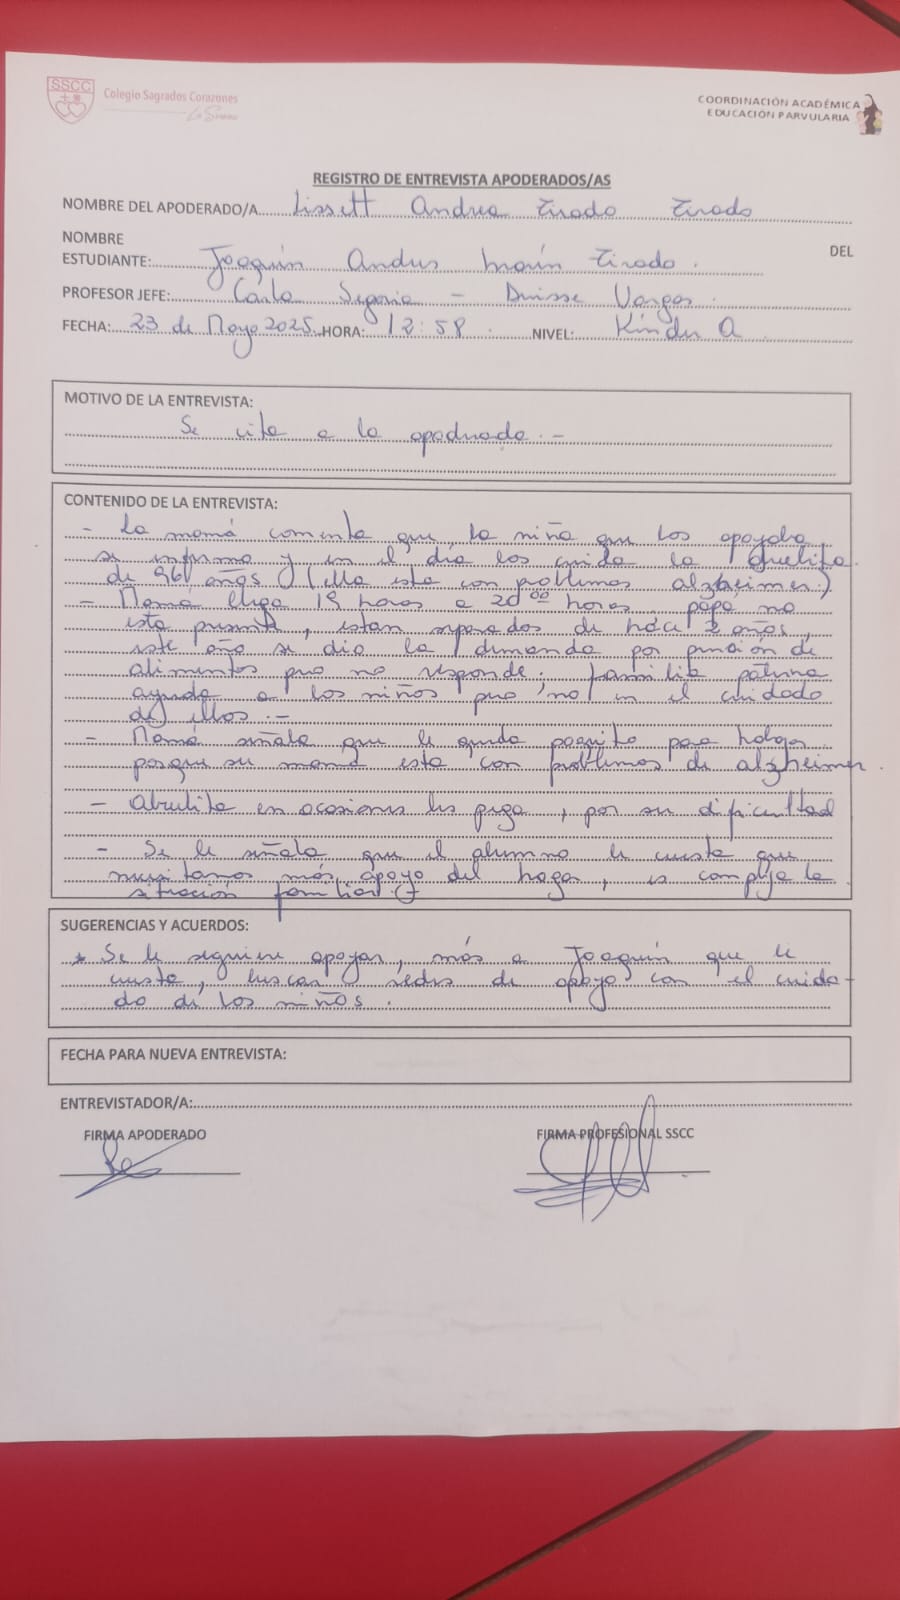 SSCC
Colegio Sagrados Corazones
La Serena
COORDINACIÓN ACADÉMICA
EDUCACIÓN PARVULARIA
REGISTRO DE ENTREVISTA APODERADOS/AS
NOMBRE DEL APODERADO/A Lissett Andrea Tirado Tirado
NOMBRE DEL
ESTUDIANTE: Joaquín Andrés Marín Tirado.
PROFESOR JEFE: Carla Segovia - Denisse Vargas.
FECHA: 23 de Mayo 2025 HORA: 12:58. NIVEL: Kínder A
MOTIVO DE LA ENTREVISTA:
Se cita a la apoderada.-
CONTENIDO DE LA ENTREVISTA:
- La mamá comenta que, la niña que los apoyaba
se enfermo y en el día los cuida la abuelita
de años (ella esta con problemas alzheimer)
- Mamá llega 19 horas a 20:00 horas. papá no
esta presente, estan separados de hace 2 años,
este año se dio la demanda por pensión de
alimentos pero no responde. familia paterna
ayuda a los niños pero no en el cuidado
de ellos.-
- Mamá señala que le queda poquito para trabajar
porque su mamá esta con problemas de alzheimer.
- Abuelita en ocasiones les pega, por su dificultad
- Se le señala que el alumno le cuesta que
necesitamos más apoyo del hogar, es compleja la
situación familiar.
SUGERENCIAS Y ACUERDOS:
* Se le sugiere apoyar, más a Joaquín que le
cuesta, buscar redes de apoyo con el cuida-
do de los niños.
FECHA PARA NUEVA ENTREVISTA:
ENTREVISTADOR/A:
FIRMA APODERADO
FIRMA PROFESIONAL SSCC